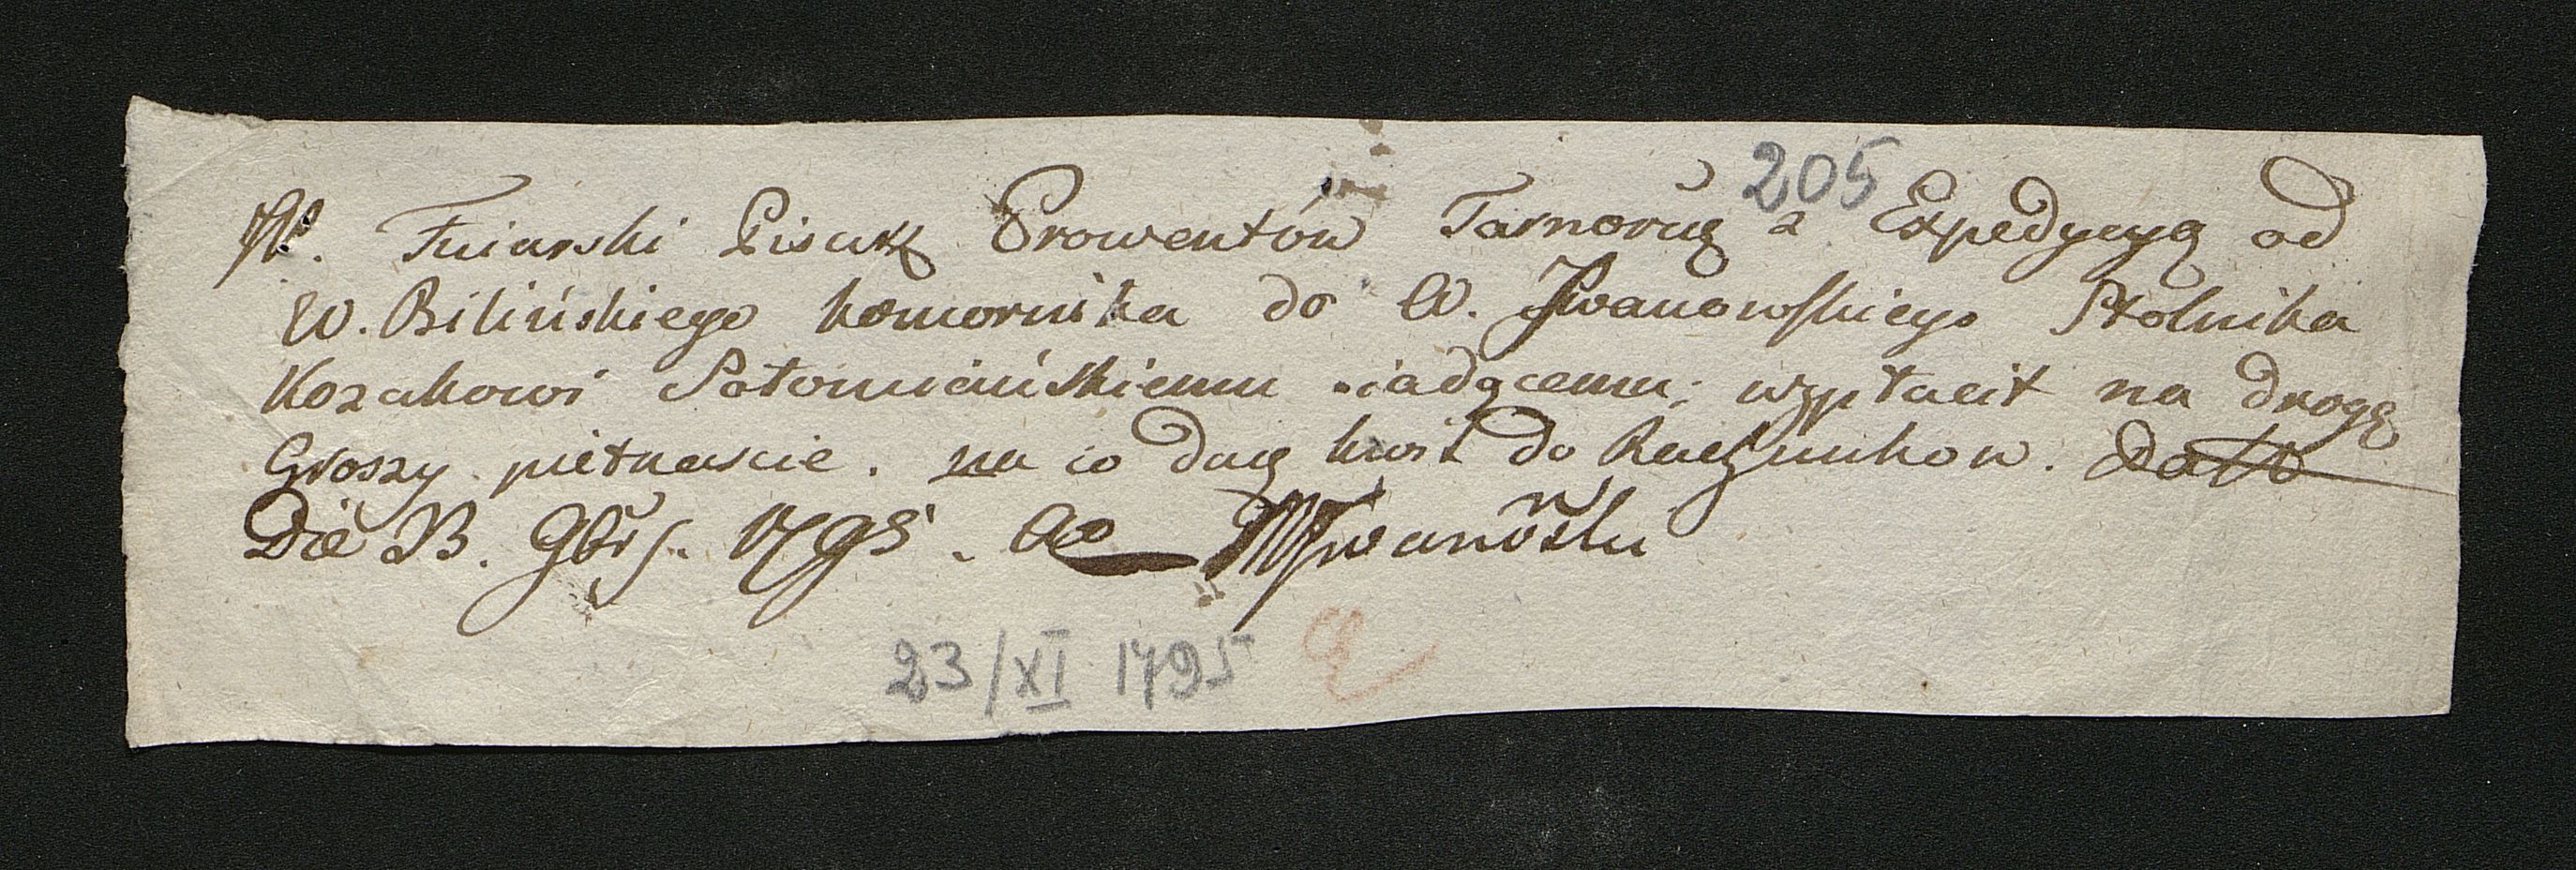 205
W. Fuiarski Pisarz Prowentów Tarnorug z Expedycyą od
W. Bilińskiego komornika do W. Jwanowskiego Stolnika
Kozakowi iadącemu, wypłacił na drogę
Groszy piętnascie. na co daię kwit do Rachunkow. Dato
Die 23. 9br: 1795. Ao MJwanowski
23/XI 1795